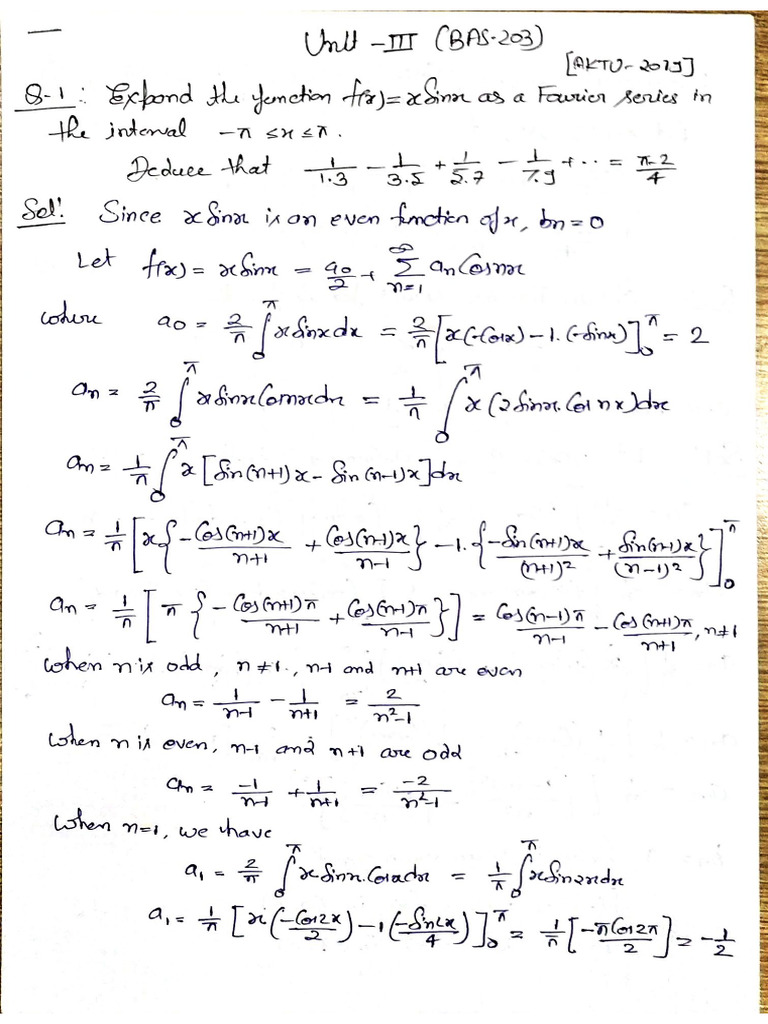 Unit -III (BAS-203)
[AKTU-2019]
Q-1: Expand the function f(x)= x Sinx as a Fourier series in
the interval -π ≤ x ≤ π.
Deduce that 1/1.3 - 1/3.5 + 1/5.7 - 1/7.9 + .. = π-2/4
Sol! Since x Sinx is an even function of x, bn = 0
Let f(x) = x sinx = a0/2 + ∑_{n=1}^{∞} an Cosnx
where a0 = 2/π ∫_0^π x sinx dx = 2/π [x(-Cosx) - 1.(-Sinx)]_0^π = 2
an = 2/π ∫_0^π x Sinx Cosnx dx = 1/π ∫_0^π x (2Sinx. Cos nx)dx
an = 1/π ∫_0^π x [Sin(n+1)x - Sin(n-1)x]dx
an = 1/π [x{-Cos(n+1)x/n+1 + Cos(n-1)x/n-1} - 1.{-Sin(n+1)x/(n+1)² + Sin(n-1)x/(n-1)²}]_0^π
an = 1/π [π {-Cos(n+1)π/n+1 + Cos(n-1)π/n-1}] = Cos(n-1)π/n-1 - Cos(n+1)π/n+1, n≠1
When n is odd, n≠1., n-1 and n+1 are even
an = 1/n-1 - 1/n+1 = 2/n²-1
When n is even, n-1 and n+1 are odd
an = -1/n-1 + 1/n+1 = -2/n²-1
When n=1, we have
a1 = 2/π ∫_0^π x Sinx. Cosx dx = 1/π ∫_0^π x Sin2x dx
a1 = 1/π [x(-Cos2x/2) - 1(-Sin2x/4)]_0^π = 1/π [-π Cos2π/2] = -1/2